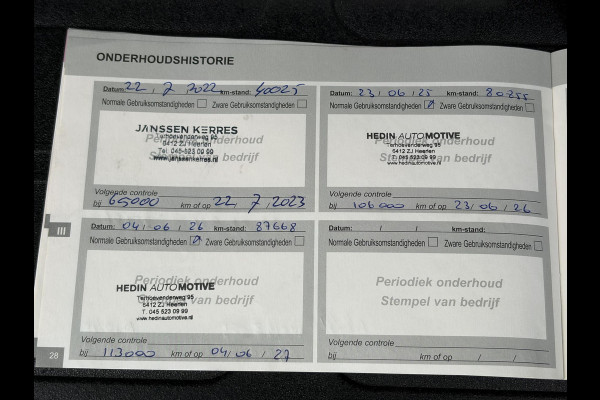 ONDERHOUDSHISTORIE
Datum: 22 / 7 / 2022 km-stand: 40025
Normale Gebruiksomstandigheden Zware Gebruiksomstandigheden
JANSSEN KERRES
Terhoevenderweg 95
6412 ZJ Heerlen
Tel. 045-523 09 99
www.janssenkerres.nl
Periodiek onderhoud
Stempel van bedrijf
Volgende controle
bij 65000 km of op 22 / 7 / 2023
Datum: 23 / 06 / 25 km-stand: 80255
Normale Gebruiksomstandigheden Zware Gebruiksomstandigheden
HEDIN AUTOMOTIVE
Terhoevenderweg 95
6412 ZJ Heerlen
T. 045 523 09 99
www.hedinautomotive.nl
Periodiek onderhoud
Stempel van bedrijf
Volgende controle
bij 106000 km of op 23 / 06 / 26
III
Datum: 04 / 06 / 26 km-stand: 87668
Normale Gebruiksomstandigheden Zware Gebruiksomstandigheden
Periodiek onderhoud
Stempel van bedrijf
HEDIN AUTOMOTIVE
Terhoevenderweg 95
6412 ZJ Heerlen
T. 045 523 09 99
www.hedinautomotive.nl
Volgende controle
bij 113000 km of op 04 / 06 / 27
Datum: / / km-stand:
Normale Gebruiksomstandigheden Zware Gebruiksomstandigheden
Periodiek onderhoud
Stempel van bedrijf
Volgende controle
bij km of op / /
28